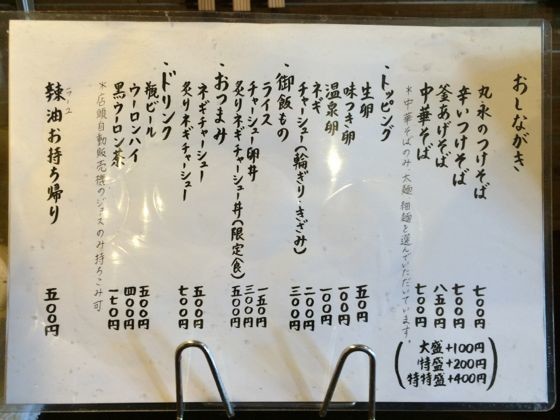 おしながき
丸永のつけそば 七〇〇円
辛いつけそば 七〇〇円
釜あげそば 八五〇円
中華そば 七〇〇円
(大盛+100円
特盛+200円
特特盛+400円)
※中華そばのみ、太麺、細麺を選んでいただいています。
・トッピング
生卵 五〇円
味つき卵 一〇〇円
温泉卵 一〇〇円
ネギ 二〇〇円
チャーシュー(輪ぎり・きざみ) 三〇〇円
・御飯もの
ライス 一五〇円
チャーシュー卵丼 三〇〇円
炙りネギチャーシュー丼(限定 食) 五〇〇円
・おつまみ
ネギチャーシュー 五〇〇円
炙りネギチャーシュー 七〇〇円
・ドリンク
瓶ビール 五〇〇円
ウーロンハイ 四〇〇円
黒ウーロン茶 一七〇円
※店頭自動販売機のジュースのみ持ちこみ可
ラーユ
辣油お持ち帰り 五〇〇円